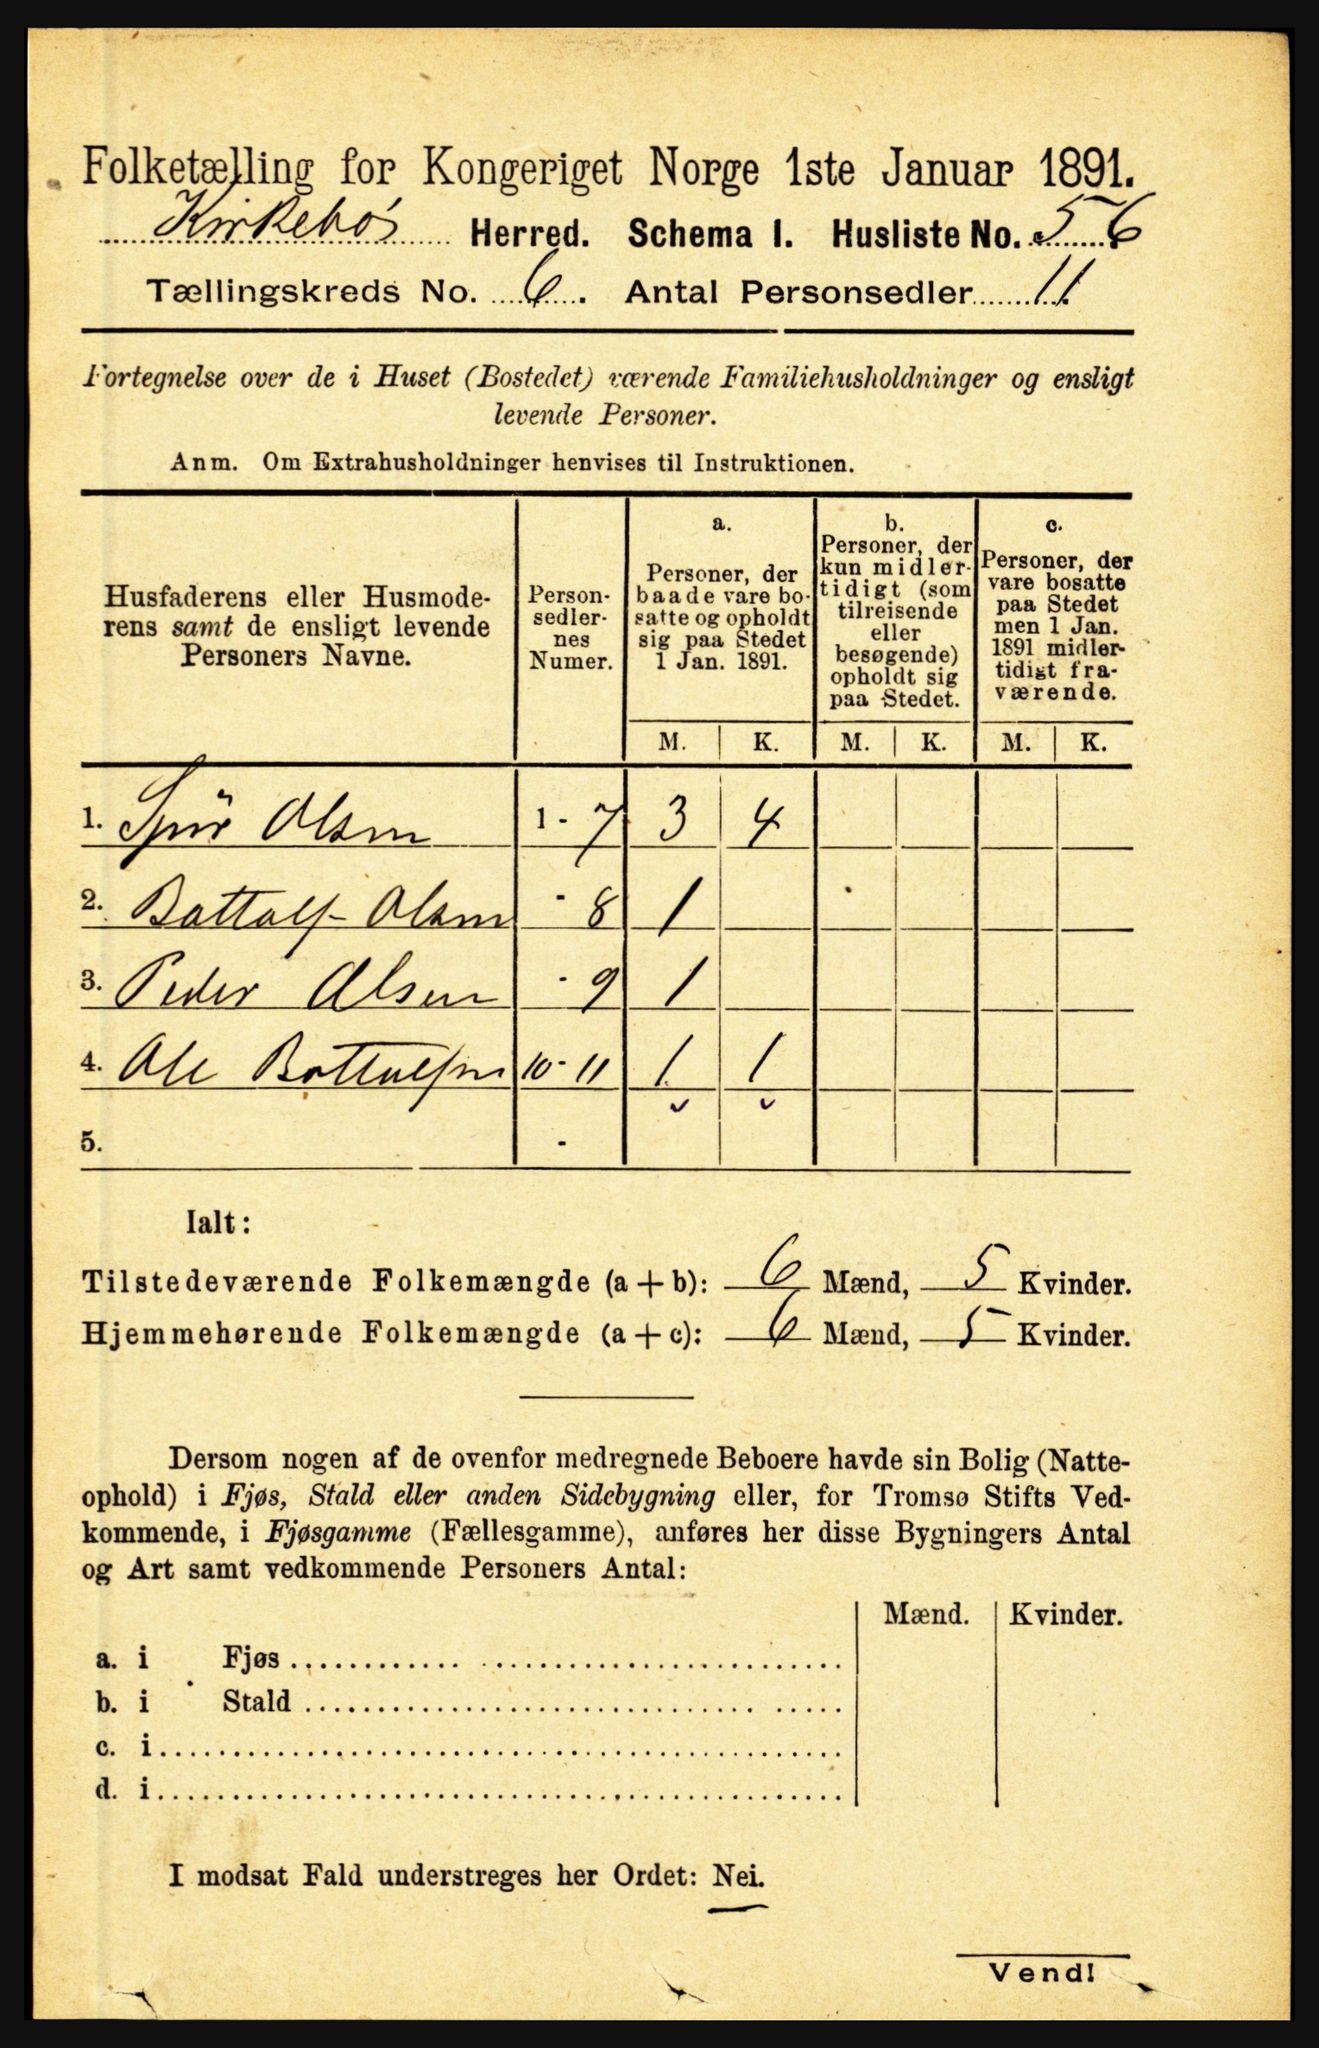 Folketælling for Kongeriget Norge 1ste Januar 1891.
Kirkebø Herred. Schema I. Husliste No. 56
Tællingskreds No. 6. Antal Personsedler 11
Fortegnelse over de i Huset (Bostedet) værende Familiehusholdninger og ensligt
levende Personer.
Anm. Om Extrahusholdninger henvises til Instruktionen.
Husfaderens eller Husmode-
rens samt de ensligt levende
Personers Navne.
Person-
sedler-
nes
Numer.
a.
Personer, der
baade vare bo-
satte og opholdt
sig paa Stedet
1 Jan. 1891.
b.
Personer, der
kun midler-
tidigt (som
tilreisende
eller
besøgende)
opholdt sig
paa Stedet.
c.
Personer, der
vare bosatte
paa Stedet
men 1 Jan.
1891 midler-
tidigt fra-
værende.
M. K. M. K. M. K.
1. Olsen 1 - 7 3 4
2. Bottolf Olsen - 8 1
3. Peder Olsen - 9 1
4. Ole Bottolfsen 10 - 11 1 1
5. -
Ialt:
Tilstedeværende Folkemængde (a + b): 6 Mænd, 5 Kvinder.
Hjemmehørende Folkemængde (a + c): 6 Mænd, 5 Kvinder.
Dersom nogen af de ovenfor medregnede Beboere havde sin Bolig (Natte-
ophold) i Fjøs, Stald eller anden Sidebygning eller, for Tromsø Stifts Ved-
kommende, i Fjøsgamme (Fællesgamme), anføres her disse Bygningers Antal
og Art samt vedkommende Personers Antal:
Mænd. Kvinder.
a. i Fjøs
b. i Stald
c. i
d. i
I modsat Fald understreges her Ordet: Nei.
Vend!